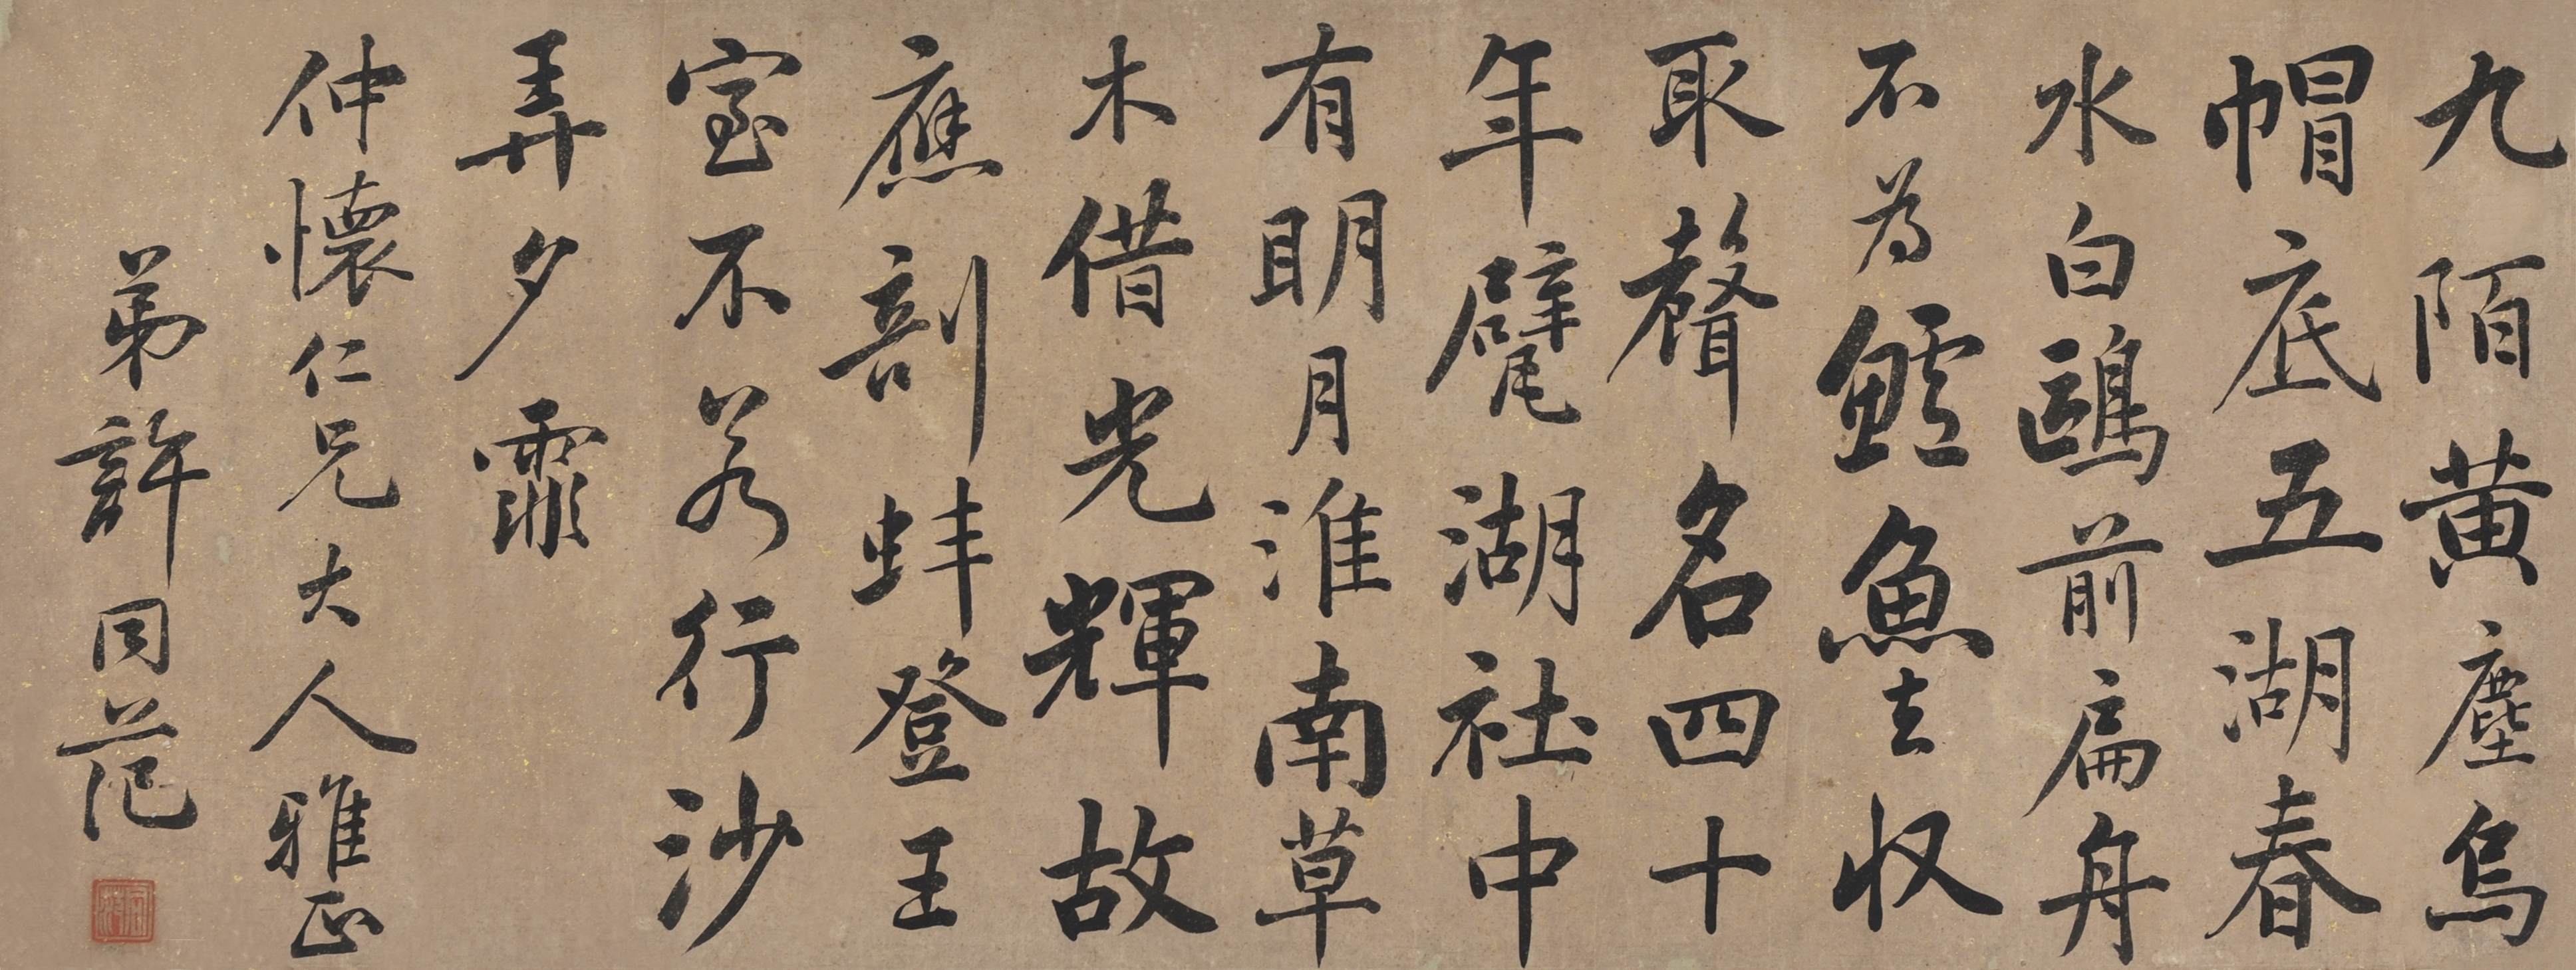 九陌黄塵烏
帽底五湖春
水白鷗前扁舟
不為鱸魚去收
取聲名四十
年甓湖社中
有明月淮南草
木借光輝故
應剖蚌登王
室不若行沙
弄夕霏
仲懷仁兄大人雅正
弟許同范